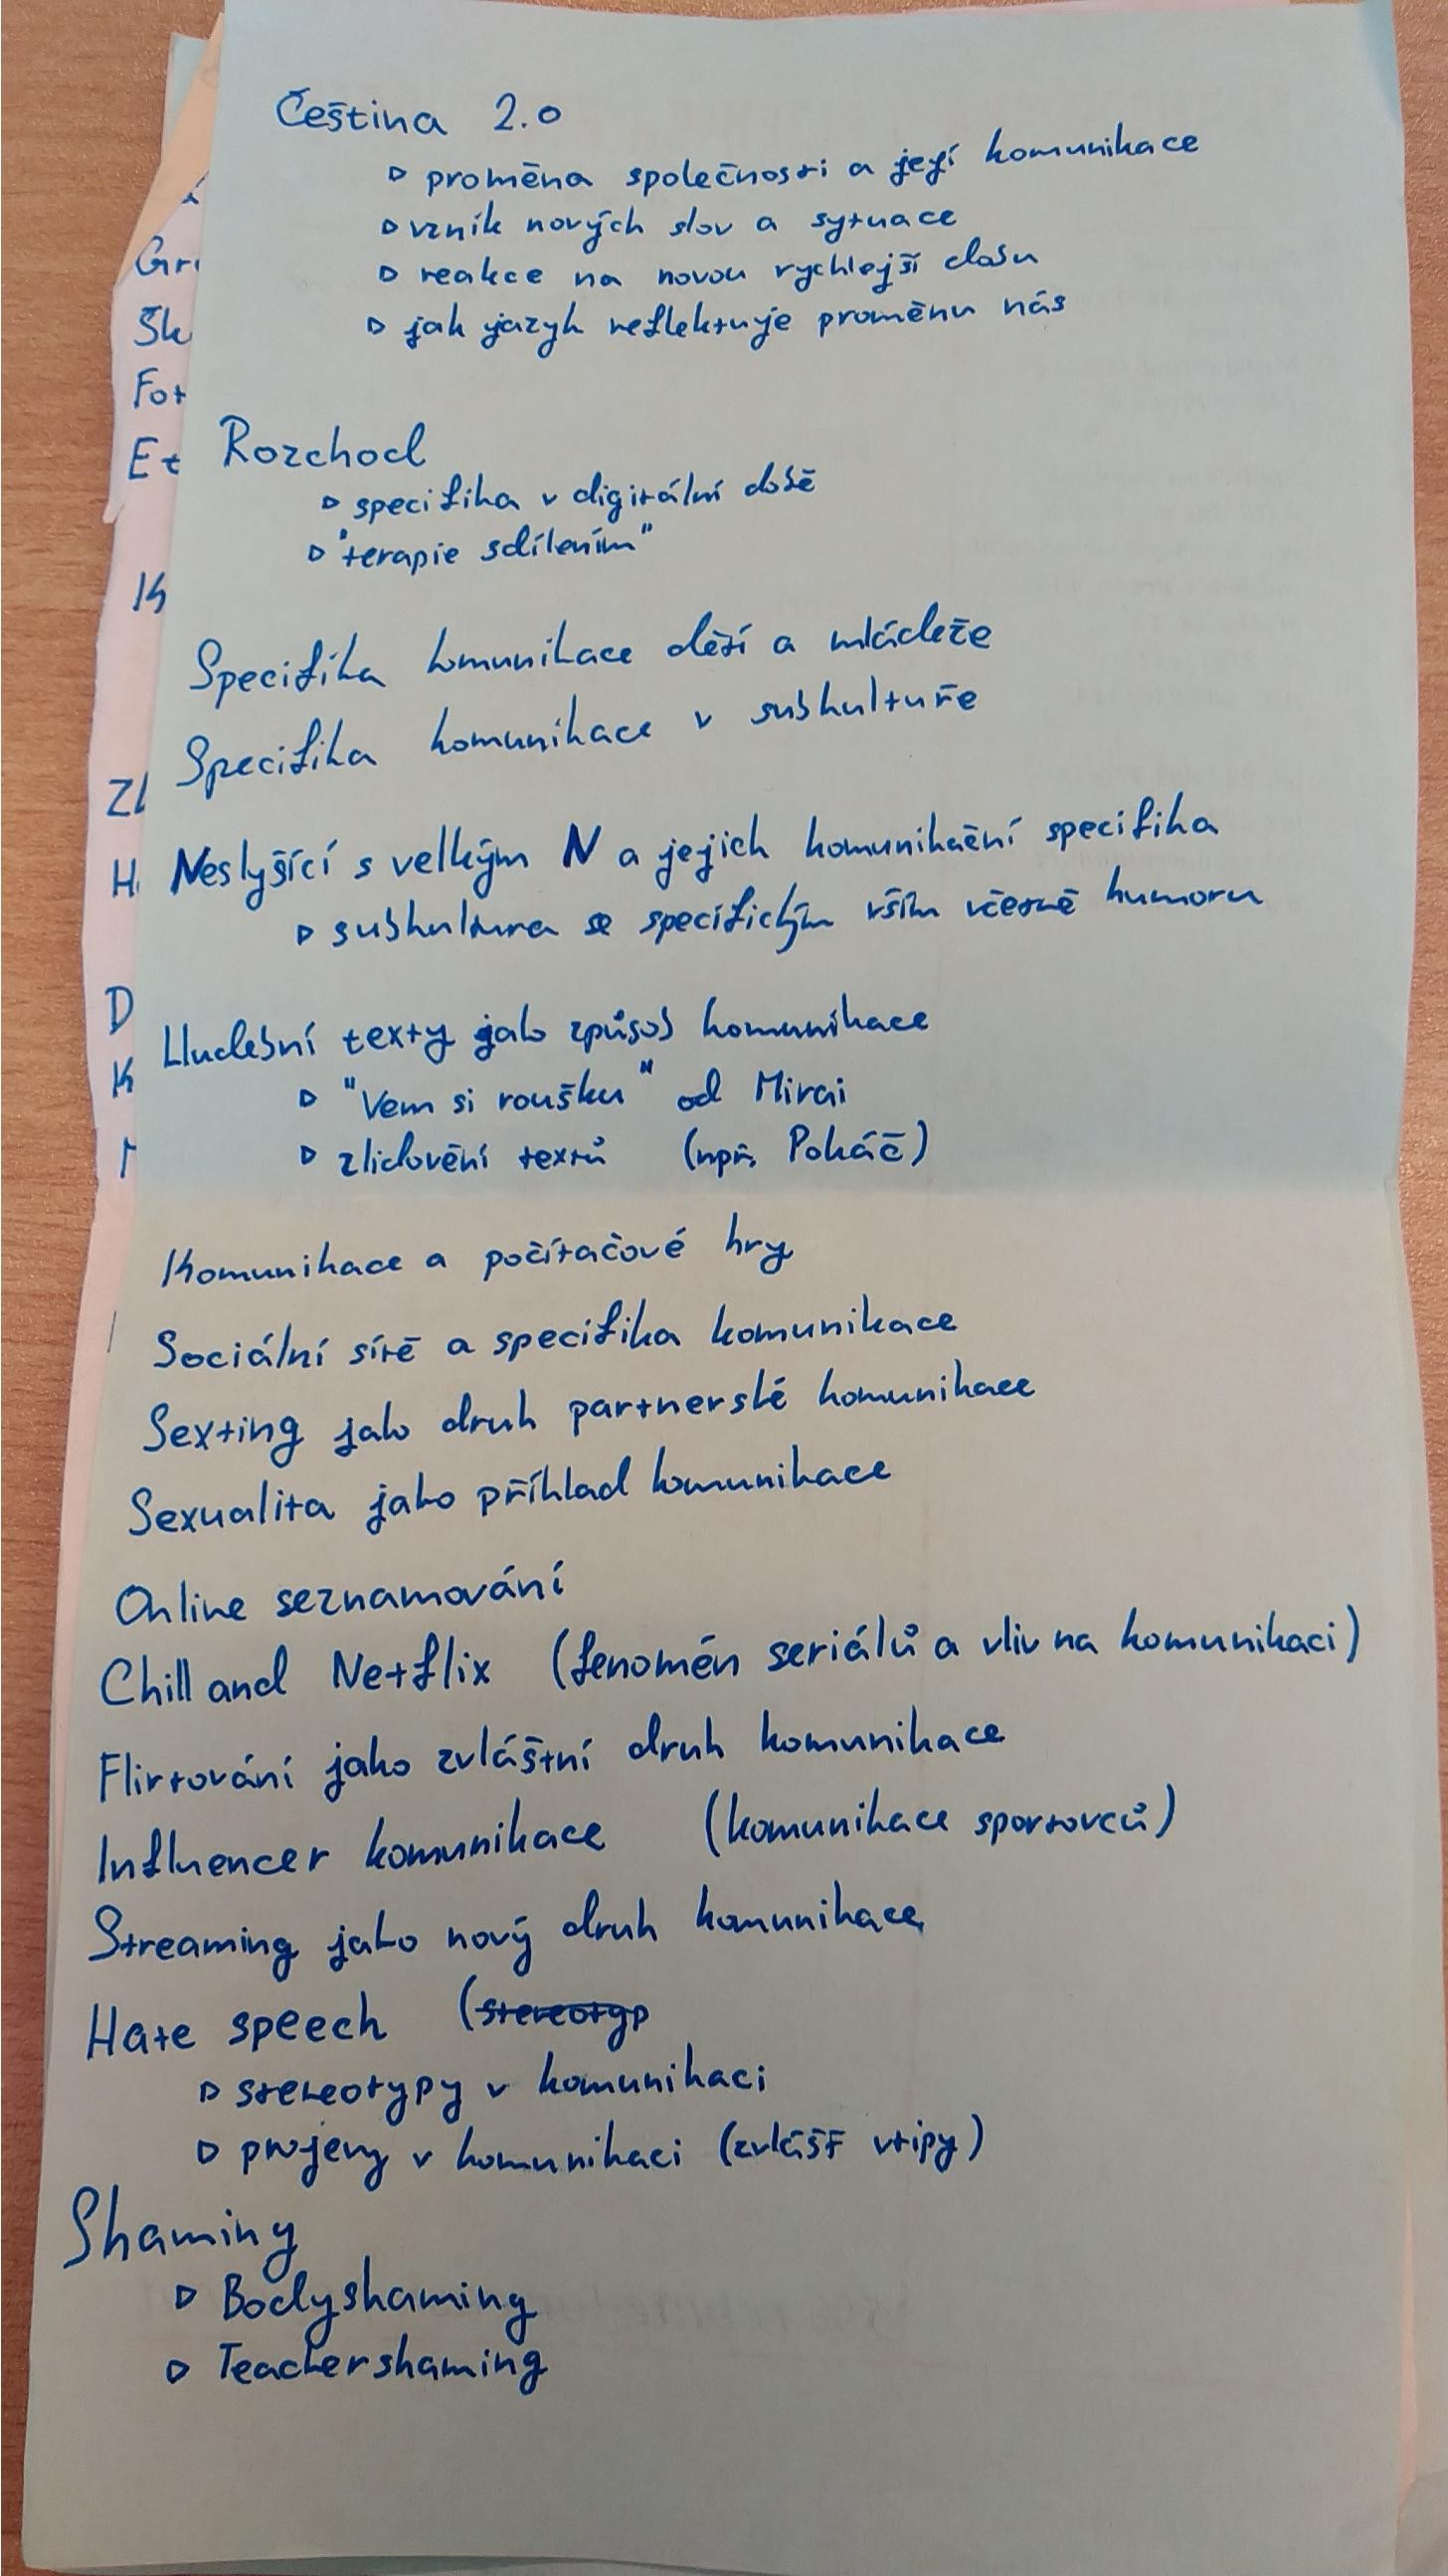 Čeština 2.0
▷ proměna společnosti a její komunikace
▷ vznik nových slov a sytuace
▷ reakce na novou rychlejší dobu
▷ jak jazyk reflektuje proměnu nás
Rozchod
▷ specifika v digitální době
▷ "terapie sdílením"
Specifika komunikace dětí a mládeže
Specifika komunikace v subkultuře
Neslyšící s velkým N a jejich komunikační specifika
▷ subkultura se specifickým vším včetně humoru
Hudební texty jako způsob komunikace
▷ "Vem si roušku" od Mirai
▷ zlidovění textů (např. Pokáč)
Komunikace a počítačové hry
Sociální sítě a specifika komunikace
Sexting jako druh partnerské komunikace
Sexualita jako příklad komunikace
Online seznamování
Chill and Netflix (fenomén seriálů a vliv na komunikaci)
Flirtování jako zvláštní druh komunikace
Influencer komunikace (komunikace sportovců)
Streaming jako nový druh komunikace
Hate speech (stereotyp
▷ stereotypy v komunikaci
▷ projevy v komunikaci (zvlášť vtipy)
Shaming
▷ Bodyshaming
▷ Teachershaming